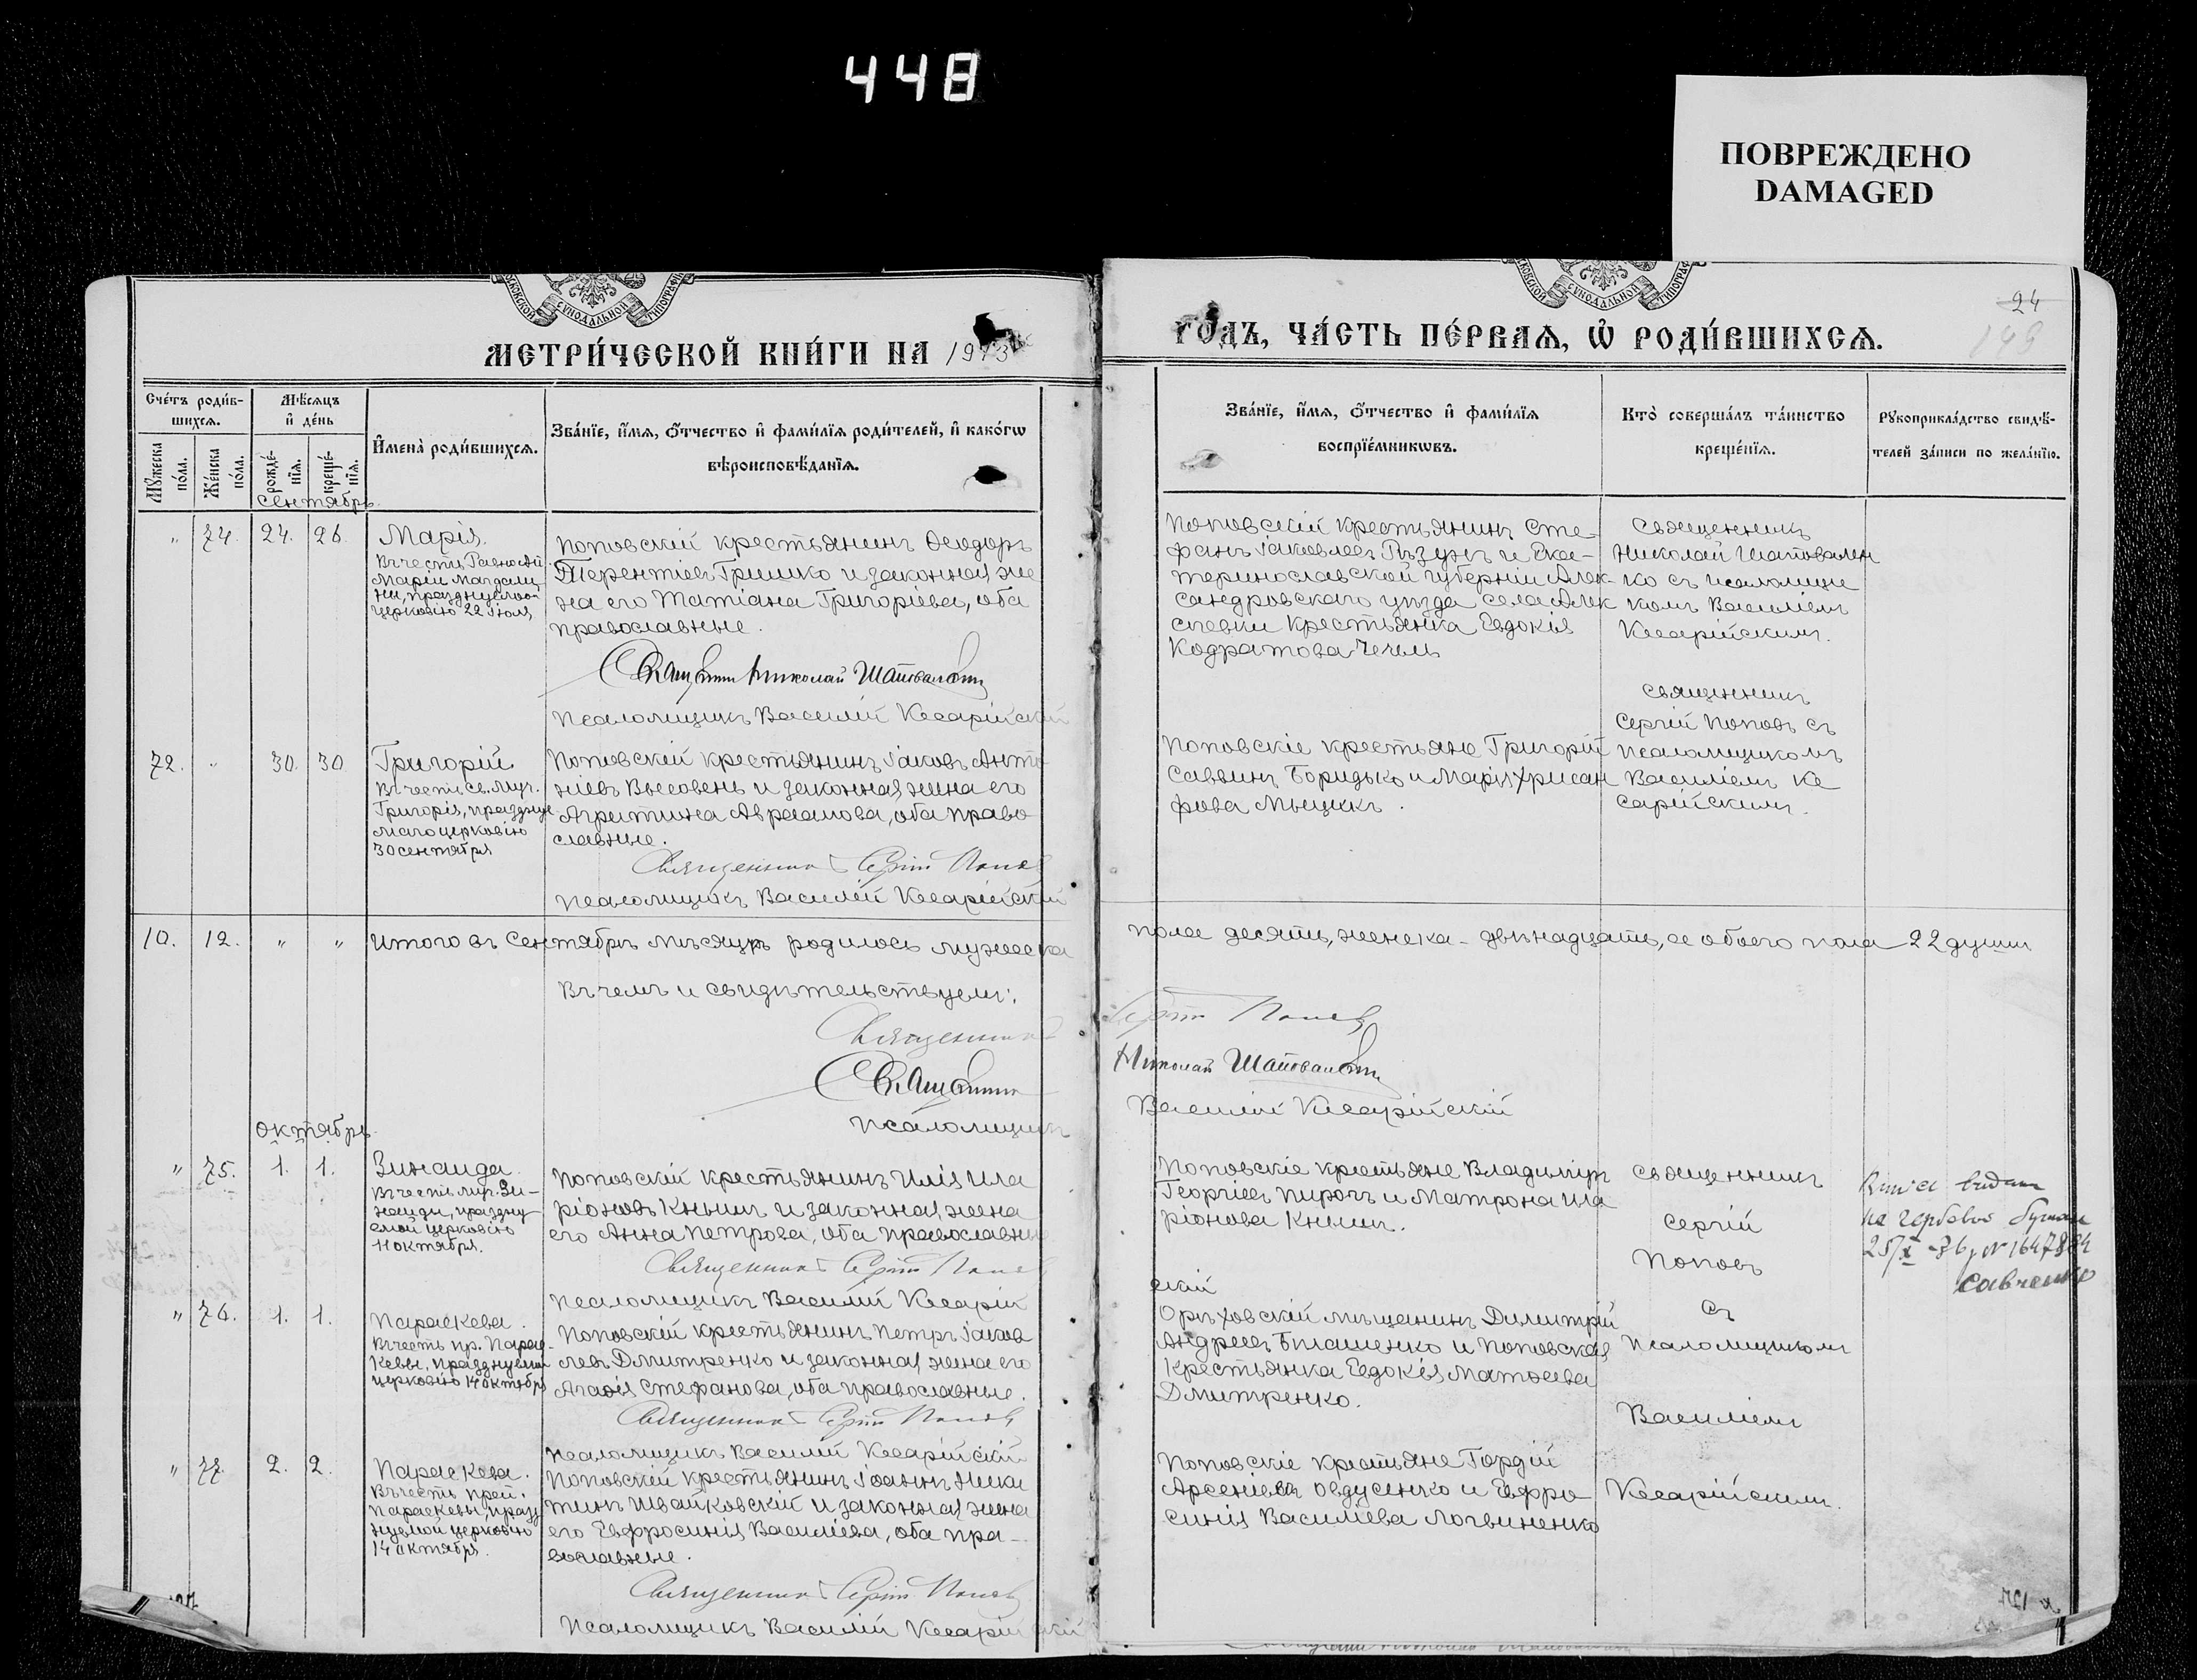 448
ПОВРЕЖДЕНО
DAMAGED
МЕТРИ́ЧЕСКОЙ КНИ́ГИ НА 1913
ГОДЪ, ЧА́СТЬ ПЕ́РВАЯ, Ѡ҆ РОДИ́ВШИХСЯ.
24
149
Сче́тъ роди́в-
шихся.
Мѣсяцъ
и҆ де́нь
Мꙋжеска
по́ла.
Же́нска
по́ла.
рожде́-
нїя.
креще́-
нїя.
И҆мена̀ роди́вшихся.
Зва́нїе, и҆́мя, о҆́тчество и҆ фами́лїя роди́телей, и҆ како́гѡ
вѣроисповѣ́данїя.
Зва́нїе, и҆́мя, о҆́тчество и҆ фами́лїя
воспрїе́мникѡвъ.
Кто̀ соверша́лъ та́инство
креще́нїя.
Рꙋкоприкла́дство свидѣ́-
телей за́писи по жела́нїю.
Сентябрь
" 74. 24. 26.
Марія.
Въ честь Равноап.
Маріи Магдали
ны, празднуемой
церковію 22 Іюля
Поповскій крестьянинъ Ѳеодоръ
Терентіевъ Гришко и законная же
на его Татіана Григоріева, оба
православные.
Священникъ Николай Шаповаленко
Псаломщикъ Василій Кесарійскій
Поповскій крестьянинъ Сте-
фанъ Іаковлевъ Пузунъ и Ека-
теринославской губерніи Алек-
сандровскаго уѣзда села Алек
сѣевки крестьянка Евдокія
Кодратова
Священникъ
Николай Шаповален
ко съ псаломщи
комъ Василіемъ
Кесарійскимъ.
72. " 30. 30
Григорій
Въ честь св. муч.
Григорія, празднуе
маго церковію
30 сентября
Поповскій крестьянинъ Іаковъ Анто
ніевъ Высовень и законная жена его
Агриппина Авраамова, оба право
славные.
Священникъ Сергій Поповъ
Псаломщикъ Василій Кесарійскій
Поповскіе крестьяне Григорій
Саввинъ Боридько и Марія Хрисан
фова Мыцикъ.
Священникъ
Сергій Поповъ съ
псаломщикомъ
Василіемъ Ке
сарійскимъ.
10. 12. " " Итого въ Сентябрѣ мѣсяцѣ родилось мужеска
пола десять, женска - двѣнадцать, а обоего пола 22 души
Въ чемъ и свидѣтельствуемъ:
Священникъ Сергій Поповъ
Священникъ Николай Шаповаленко
Псаломщикъ Василій Кесарійскій
Октябрь
" 75. 1. 1.
Зинаида.
Въ честь муч. Зи-
наиды, праздну-
емой церковію
11 октября.
Поповскій крестьянинъ Илія Ила
ріоновъ Кнышъ и законная жена
его Анна Петрова, оба православные
Священникъ Сергій Поповъ
Псаломщикъ Василій Кесарій
скій
Поповскіе крестьяне Владиміръ
Георгіевъ Пирогъ и Матрона Ила
ріонова Кнышъ.
Священникъ
Сергій
Поповъ
съ
псаломщикомъ
Василіемъ
Кесарійскимъ.
видано
на гербовій бумазі
25/X -36 р № 164788
Савченко
" 76. 1. 1.
Параскева.
Въ честь пр. Парас-
кевы, празднуемой
церковію 14 октября
Поповскій крестьянинъ Петръ Іаков
левъ Дмитренко и законная жена его
Агафія Стефанова, оба православные.
Священникъ Сергій Поповъ
Псаломщикъ Василій Кесарійскій
Орѣховскій мѣщанинъ Димитрій
Андреевъ Ильяшенко и Поповская
крестьянка Евдокія Матѳеева
Дмитренко.
" 77. 2. 2.
Параскева.
Въ честь преп.
Параскевы, празд
нуемой церковію
14 октября.
Поповскій крестьянинъ Іоаннъ Ники
тинъ Швайковскій и законная жена
его Евфросинія Василіева, оба пра-
вославные.
Священникъ Сергій Поповъ
Псаломщикъ Василій Кесарійскій
Поповскіе крестьяне Гордій
Арсеніевъ Овдусенко и Евфро
синія Василіева Логвиненко